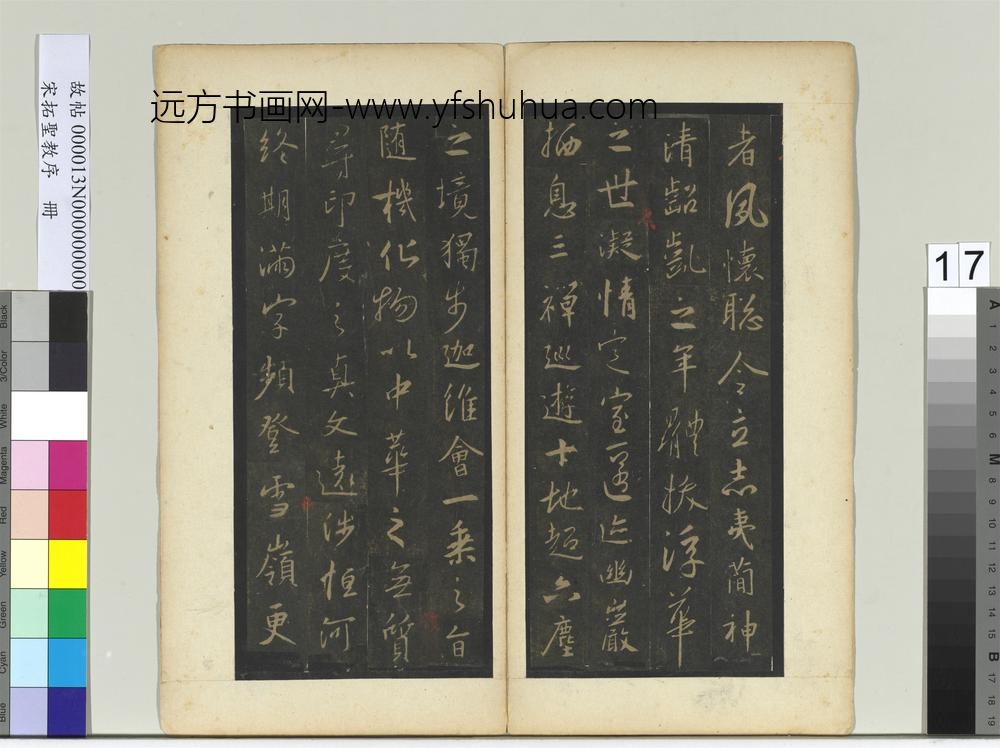 远方书画网-www.yfshuhua.com
故帖 000013N000000000
宋拓聖教序 冊
者夙懷聡令立志夷簡神
清齠齔之年體拔浮華
之世凝情定室匿迹幽巖
栖息三禪巡遊十地超六塵
之境獨步迦維會一乘之旨
随機化物以中華之無質
尋印度之真文遠涉恒河
終期滿字頻登雪嶺更
17
Black
3/Color
White
Magenta
Red
Yellow
Green
Cyan
Blue
A
1
2
3
4
5
6
M
8
9
10
11
12
13
14
15
B
17
18
19